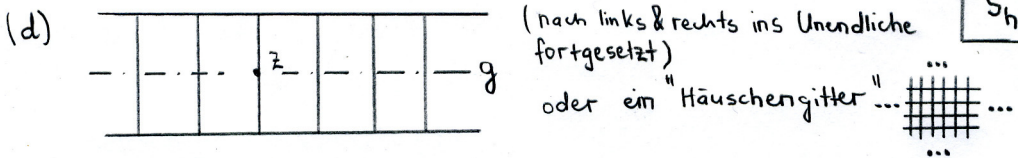 (d)
z
g
(nach links & rechts ins Unendliche
fortgesetzt)
oder ein "Häuschengitter"... ...
...
...
Sh